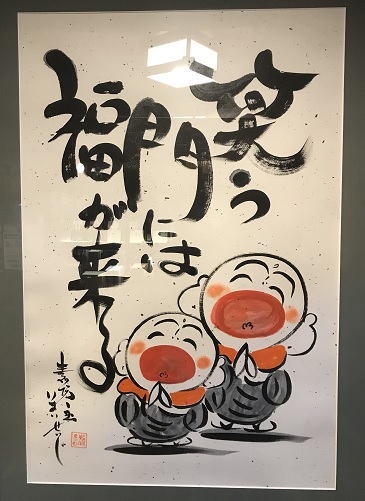 笑う
門には
福が来る